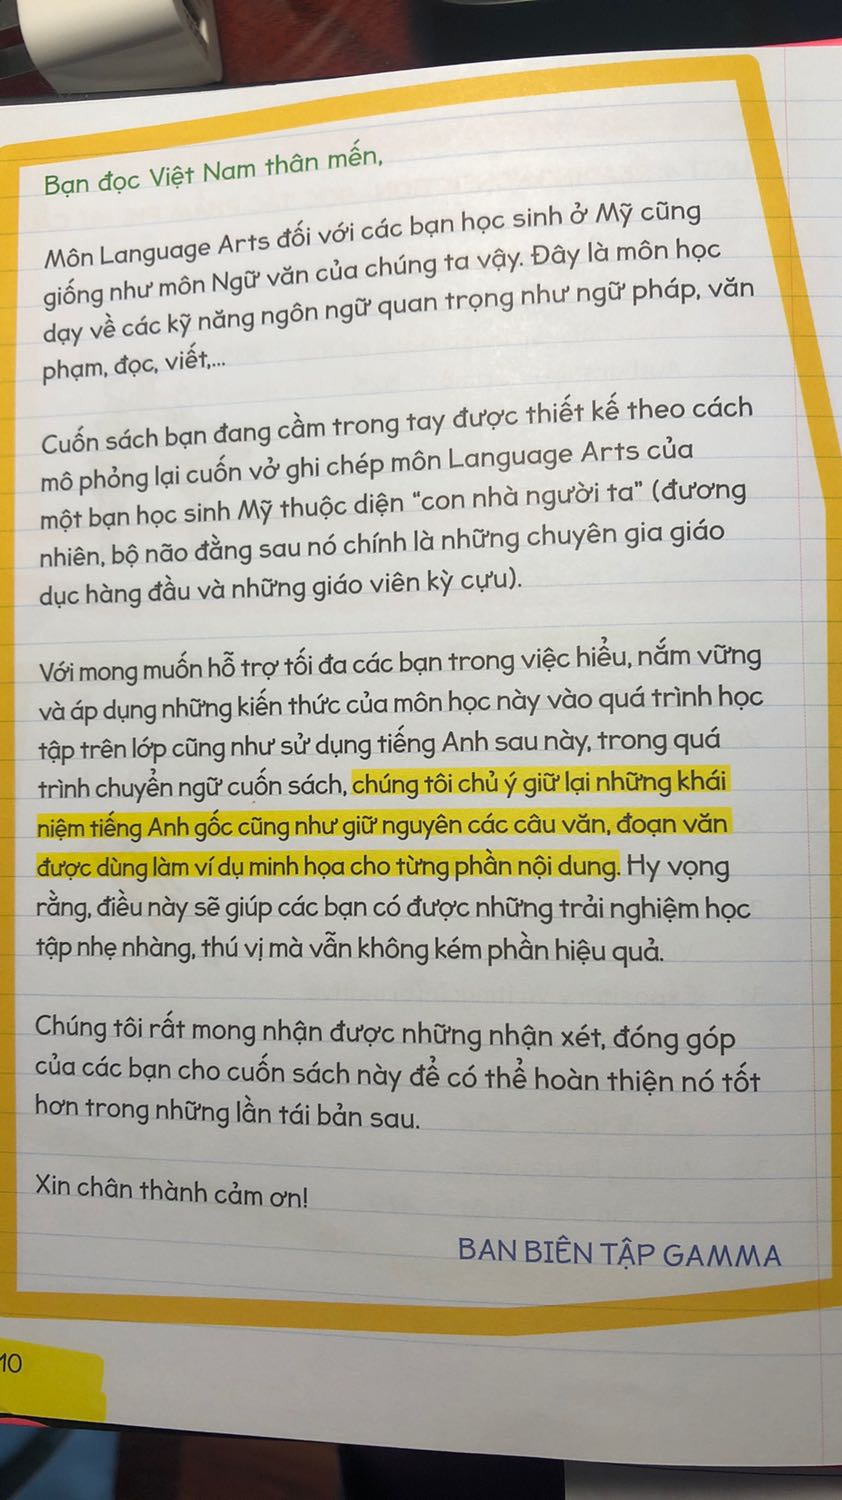 Bạn đọc Việt Nam thân mến,
Môn Language Arts đối với các bạn học sinh ở Mỹ cũng
giống như môn Ngữ văn của chúng ta vậy. Đây là môn học
dạy về các kỹ năng ngôn ngữ quan trọng như ngữ pháp, văn
phạm, đọc, viết,...
Cuốn sách bạn đang cầm trong tay được thiết kế theo cách
mô phỏng lại cuốn vở ghi chép môn Language Arts của
một bạn học sinh Mỹ thuộc diện “con nhà người ta” (đương
nhiên, bộ não đằng sau nó chính là những chuyên gia giáo
dục hàng đầu và những giáo viên kỳ cựu).
Với mong muốn hỗ trợ tối đa các bạn trong việc hiểu, nắm vững
và áp dụng những kiến thức của môn học này vào quá trình học
tập trên lớp cũng như sử dụng tiếng Anh sau này, trong quá
trình chuyển ngữ cuốn sách, chúng tôi chủ ý giữ lại những khái
niệm tiếng Anh gốc cũng như giữ nguyên các câu văn, đoạn văn
được dùng làm ví dụ minh họa cho từng phần nội dung. Hy vọng
rằng, điều này sẽ giúp các bạn có được những trải nghiệm học
tập nhẹ nhàng, thú vị mà vẫn không kém phần hiệu quả.
Chúng tôi rất mong nhận được những nhận xét, đóng góp
của các bạn cho cuốn sách này để có thể hoàn thiện nó tốt
hơn trong những lần tái bản sau.
Xin chân thành cảm ơn!
BAN BIÊN TẬP GAMMA
10